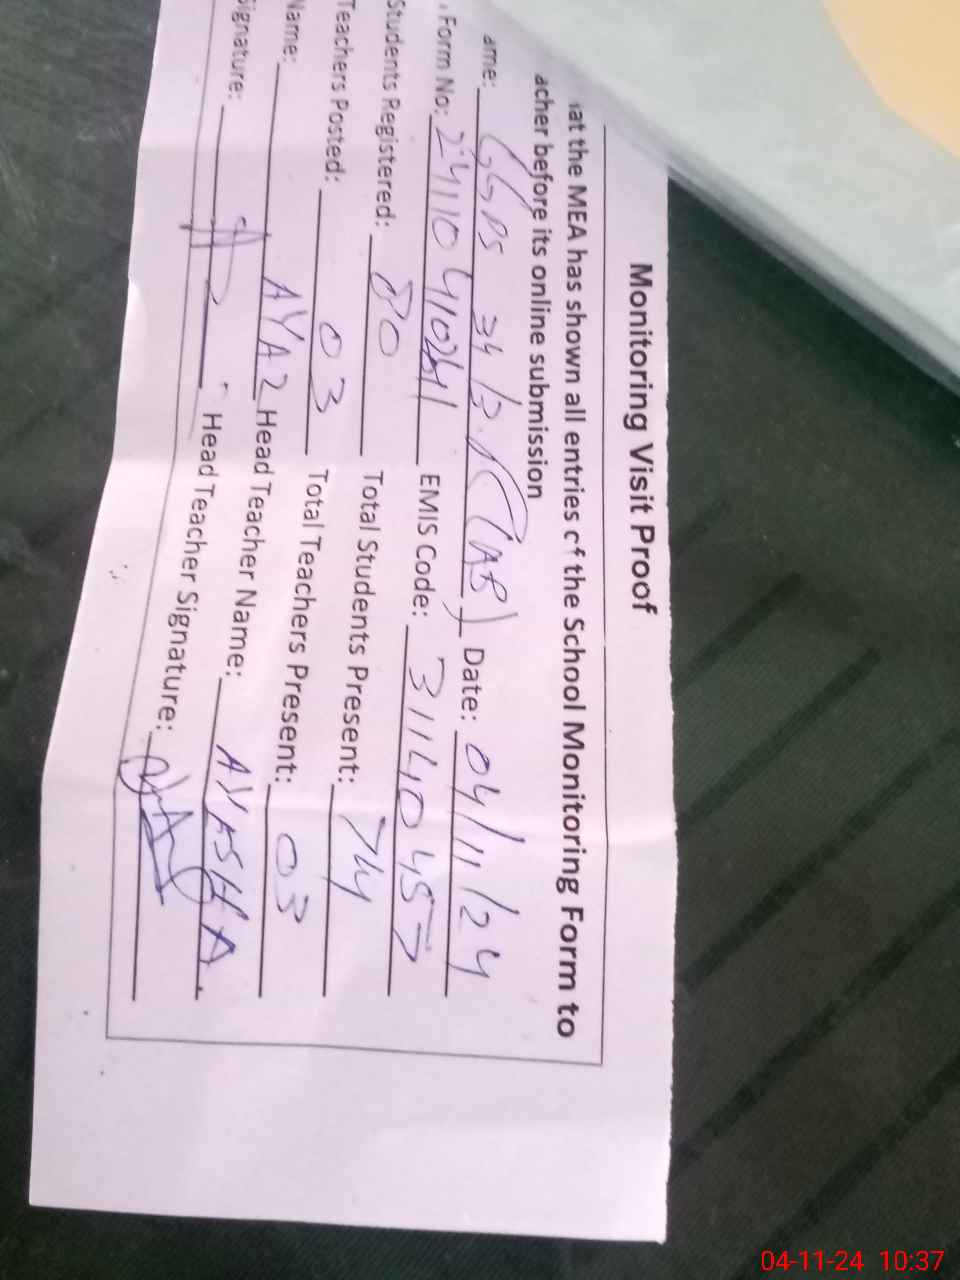 Monitoring Visit Proof
at the MEA has shown all entries of the School Monitoring Form to
acher before its online submission
ame: GGPS 34/3.R(TAB) Date: 04/11/24
Form No: 24110410261 EMIS Code: 31140457
Students Registered: 80 Total Students Present: 74
Teachers Posted: 03 Total Teachers Present: 03
Name: AYAZ Head Teacher Name: AYASHA
Signature: Head Teacher Signature:
04-11-24 10:37